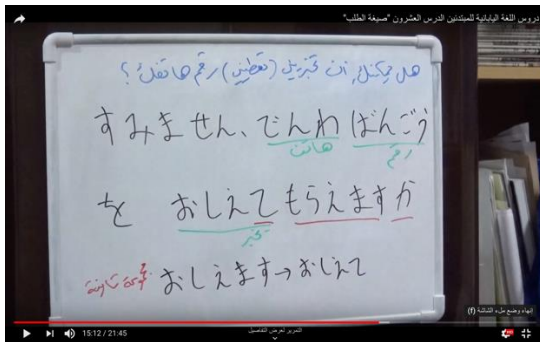 دروس اللغة اليابانية للمبتدئين الدرس العشرون "صيغة الطلب"
هل يمكنك ان تخبريني (تعطيني) رقم هاتفك ؟
すみません、でんわ ばんごう
هاتف رقم
を おしえて もらえますか
تخبر
おしえます→おしえて
إنهاء وضع ملء الشاشة (f)
15:12 / 21:45
التمرير لعرض التفاصيل